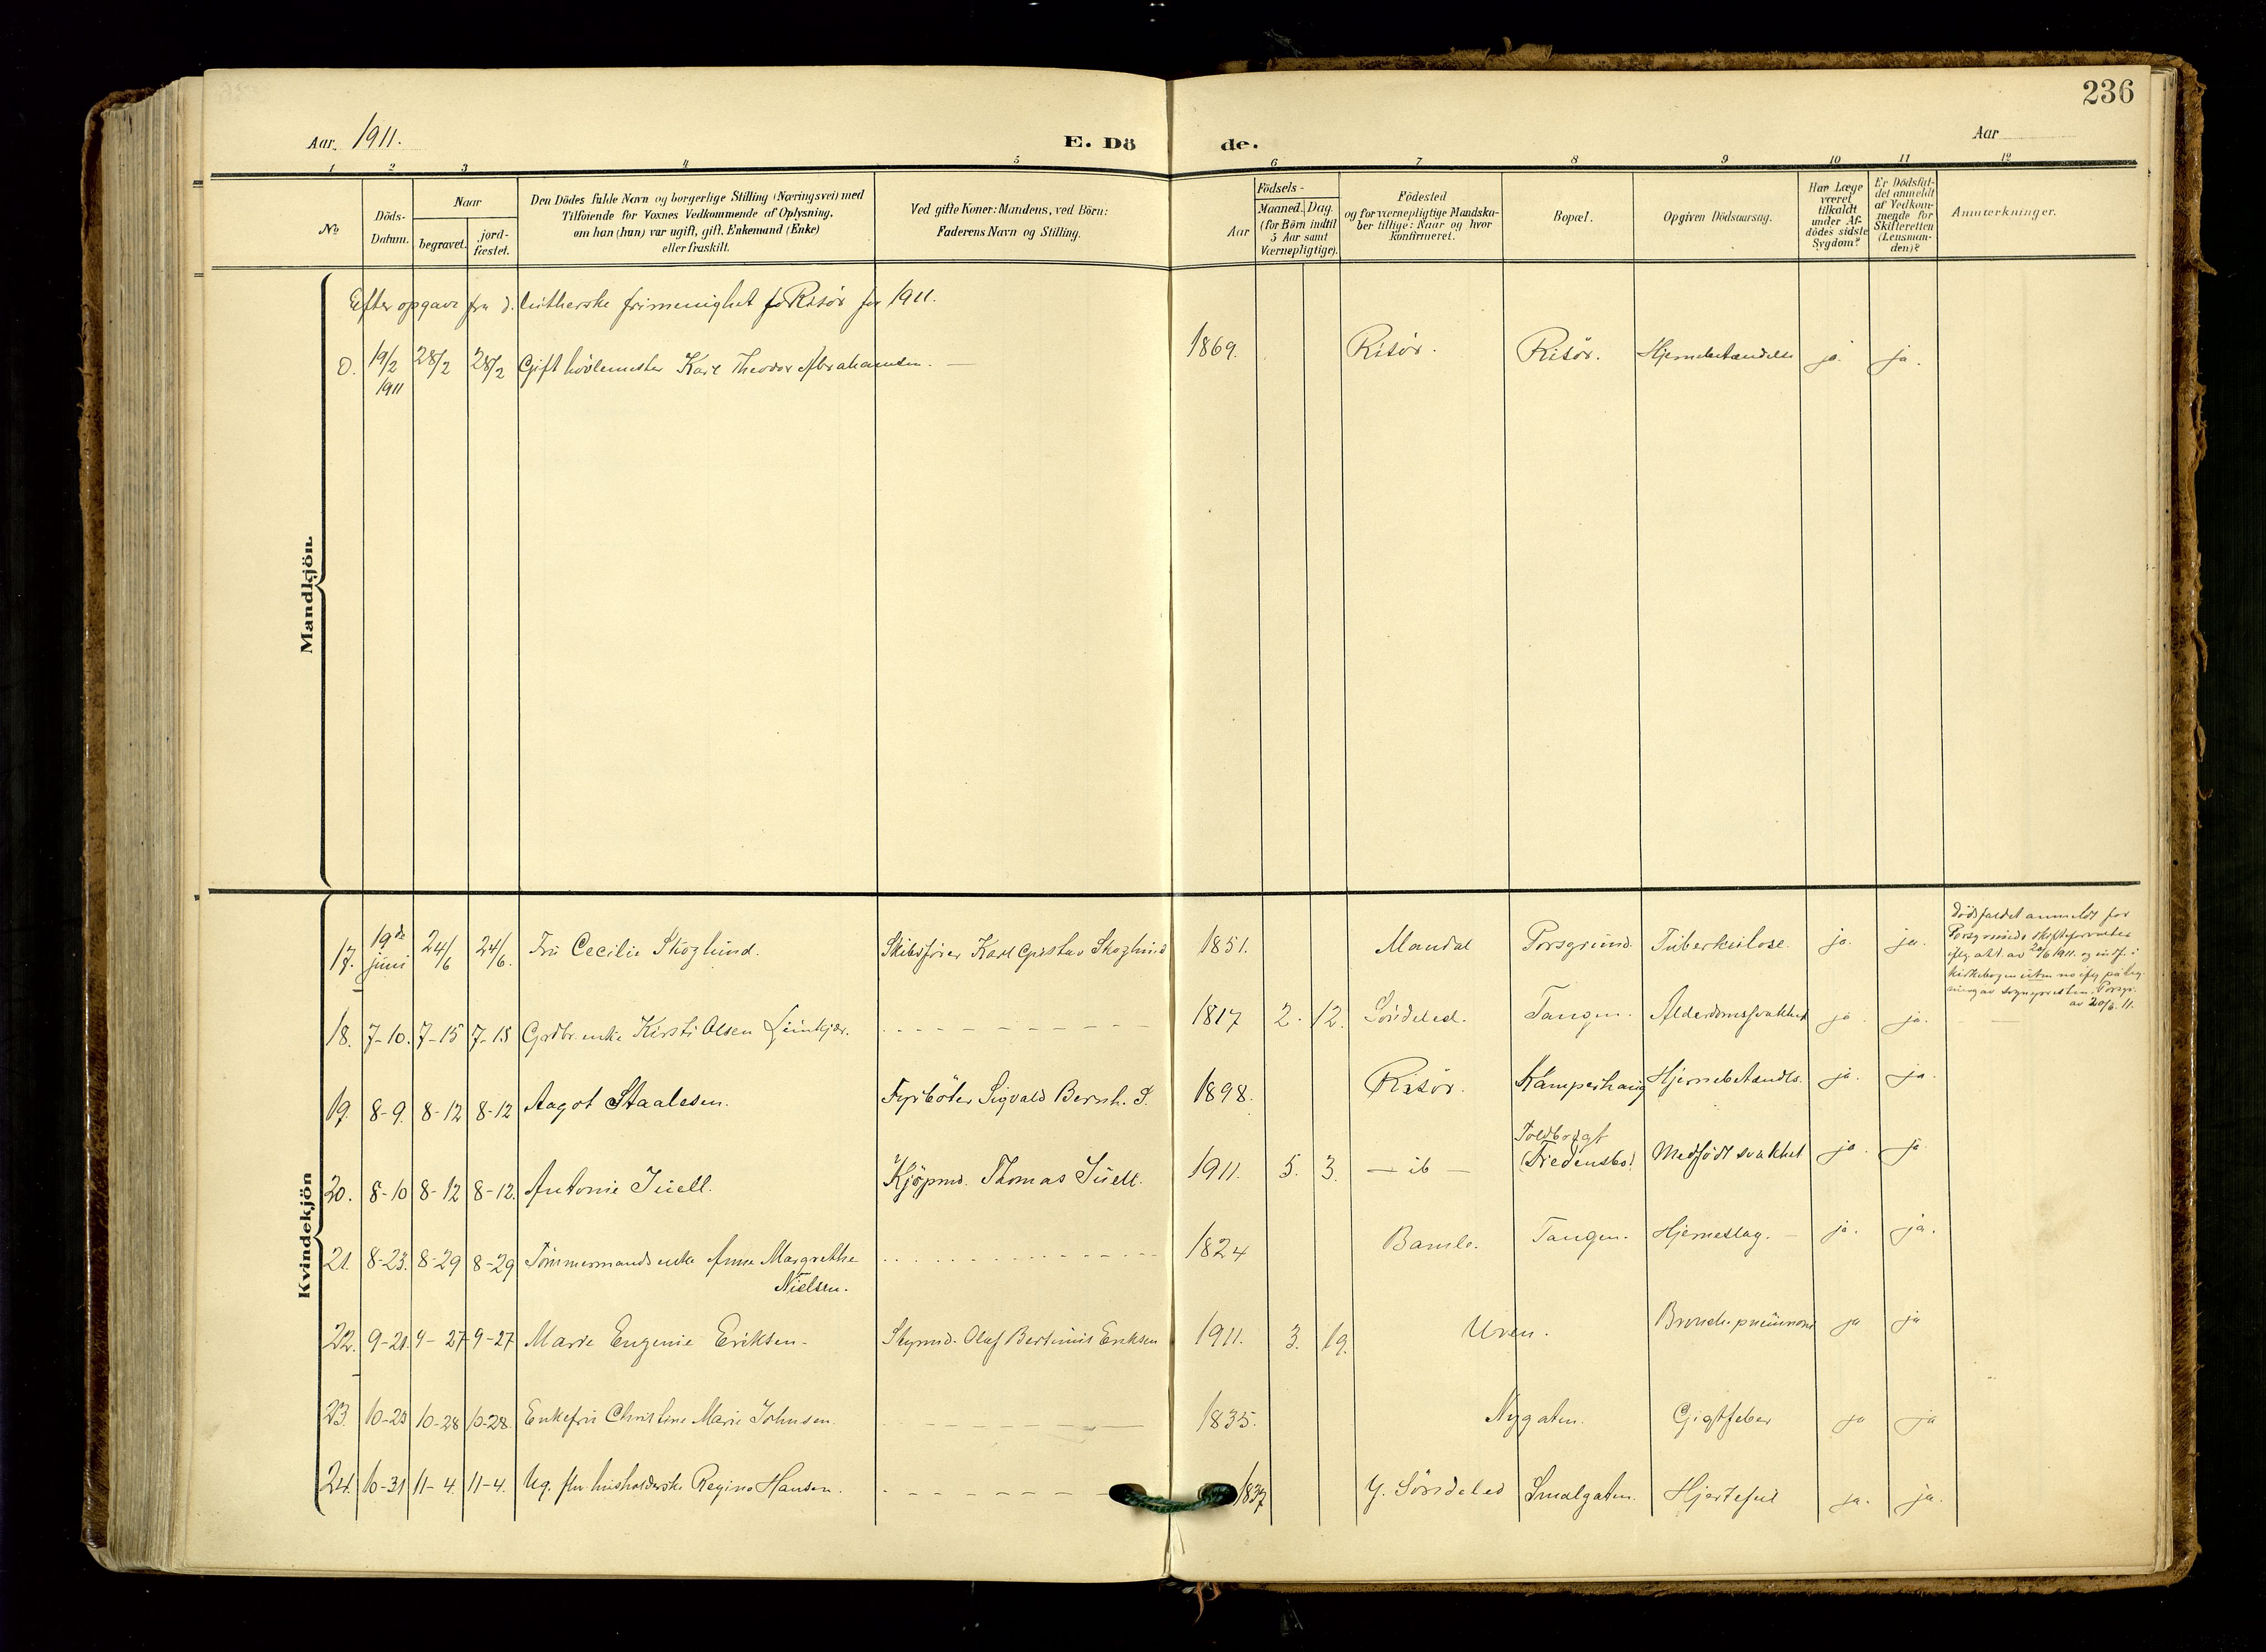 236
Aar. 1911.
E. Dö
de.
Aar
1 2 3 4 5 6 7 8 9 10 11 12
№
Döds-Datum.
Naar
begravet.
jord-fæstet.
Den Dödes fulde Navn og borgerlige Stilling (Næringsvei) med
Tilføiende for Voxnes Vedkommende af Oplysning,
om han (hun) var ugift, gift, Enkemand (Enke)
eller fraskilt.
Ved gifte Koner: Mandens, ved Börn:
Faderens Navn og Stilling.
Aar
Födsels-
Maaned. Dag.
(for Børn indtil
5 Aar samt
Værnepligtige).
Födested
og for værnepligtige Mandska-
ber tillige: Naar og hvor
konfirmeret.
Bopæl.
Opgiven Dödsaarsag.
Har Læge
været
tilkaldt
under Af-
dödes sidste
Sygdom?
Er Dödsfal-
det anmeldt
af Vedkom-
mende for
Skifteretten
(Lensman-
den)?
Anmærkninger.
Mandkjön.
Efter opgave fra d. lutherske frimenighet Risör for 1911.
D. 19/2 1911 28/2 28/2 Gift hövlemester Karl Theodor Abrahamsen. — 1869. Risör. Risör. Hjernebetændelse ja. ja.
Kvindekjön
17. 19de juni 24/6 24/6. Fru Cecilie Skoglund. Skibsfører Karl Gustav Skoglund 1851. Mandal Porsgrund. Tuberkulose. ja. ja. Dödsfaldet anmeldt for
Porsgrunds skifteforvalter
iflg. akt. av 20/6 1911. og indf. i
kirkebogen uten no iflg påteg-
ning av sognepresten i Porsgr.
av 20/6. 11.
18. 7-10. 7-15 7-15 Grdbr. enke Kirsti Olsen - - - 1817 2. 12. Söndeled. Tangen. Alderdomssvakhet ja ja. —
19. 8-9. 8-12 8-12 Aagot Staalesen. Fyrböter Sigvald Bernh. S. 1898. Risör. Kamperhaug Hjernebetændls. ja. ja.
20. 8-10 8-12 8-12. Antonie Juell. Kjöpmd. Thomas Juell. 1911. 5. 3. — ib — Toldbodgt
(Fredensbo) Medfödt svakhet ja. ja
21. 8-23. 8-29 8-29 Tömmermands enke Anne Margrethe
Nielsen. - - - 1824 Bamle. Tangen. Hjerneslag. — ja. ja.
22. 9-21. 9-27 9-27 Marie Eugenie Eriksen. Styrmd. Olaf Bertinius Eriksen 1911. 3. 19. Uren. Bronch. pneumoni ja ja
23. 10-23 10-28 10-28. Enkefru Christine Marie Johnsen. - - - 1835. Nygaten. Gigtfeber ja ja
24. 10-31 11-4. 11-4. Ug. fhv. husholderske Regine Hansen. - - - 1837 Y. Söndeled Smalgaten. Hjertefeil ja. ja.